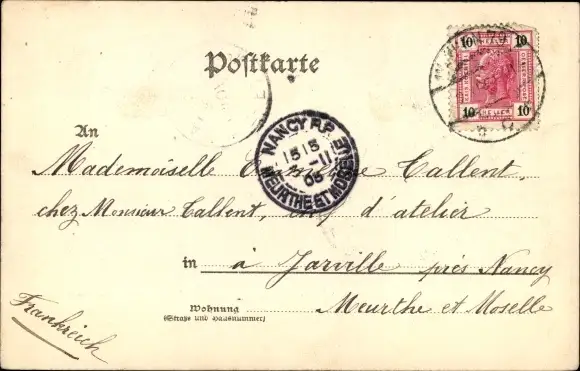 Postkarte
10 10
10 10
NANCY R.P.
15 15
11
05
MEURTHE ET MOSELLE
An
Mademoiselle Callent,
chez Monsieur Callent, d'atelier
in à Jarville près Nancy
Wohnung
(Straße und Hausnummer)
Meurthe et Moselle
Frankreich